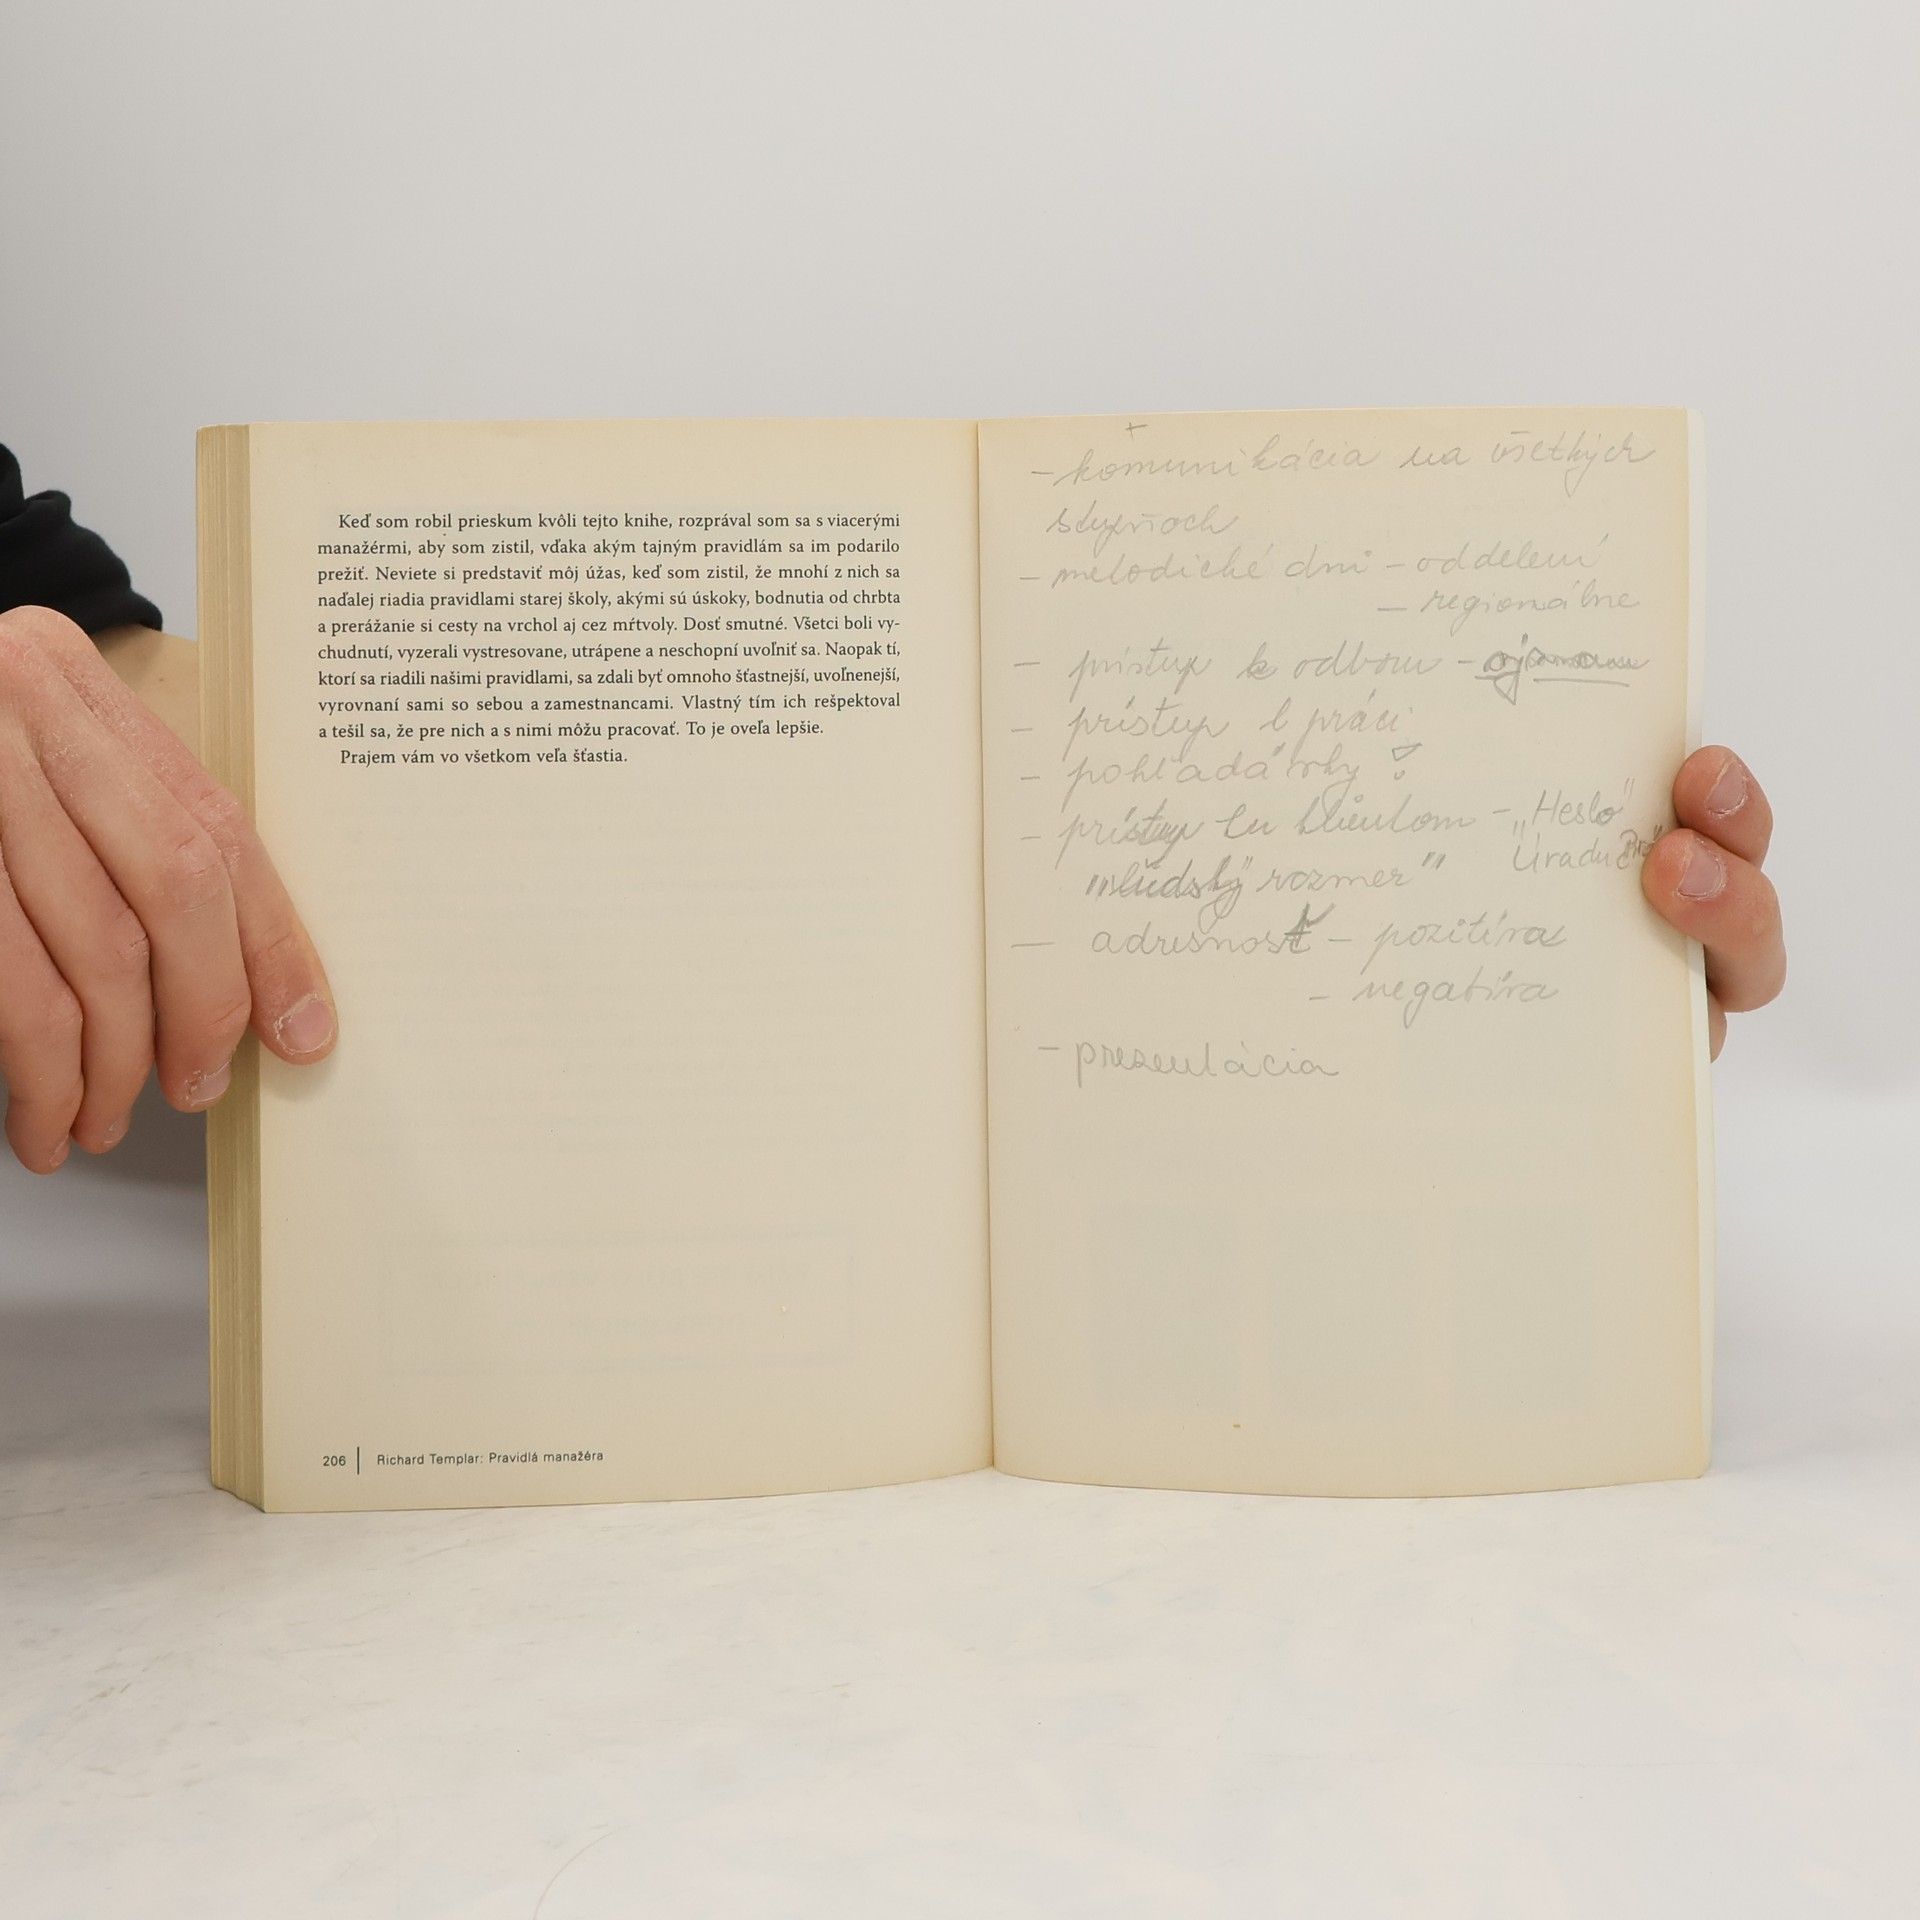 Keď som robil prieskum kvôli tejto knihe, rozprával som sa s viacerými
manažérmi, aby som zistil, vďaka akým tajným pravidlám sa im podarilo
prežiť. Neviete si predstaviť môj úžas, keď som zistil, že mnohí z nich sa
naďalej riadia pravidlami starej školy, akými sú úskoky, bodnutia od chrbta
a prerážanie si cesty na vrchol aj cez mŕtvoly. Dosť smutné. Všetci boli vy-
chudnutí, vyzerali vystresovane, utrápene a neschopní uvoľniť sa. Naopak tí,
ktorí sa riadili našimi pravidlami, sa zdali byť omnoho šťastnejší, uvoľnenejší,
vyrovnaní sami so sebou a zamestnancami. Vlastný tím ich rešpektoval
a tešil sa, že pre nich a s nimi môžu pracovať. To je oveľa lepšie.
Prajem vám vo všetkom veľa šťastia.
206 | Richard Templar: Pravidlá manažéra
- komunikácia na všetkých
stupňoch
- metodické dni - oddelení
- regionálne
- prístup k odboru -
- prístup k práci
- pohľadávky !
- prístup ku klientom - „Heslo"
Úradu
"ľudský rozmer"
- adresnosť - pozitíva
- negatíva
- prezentácia